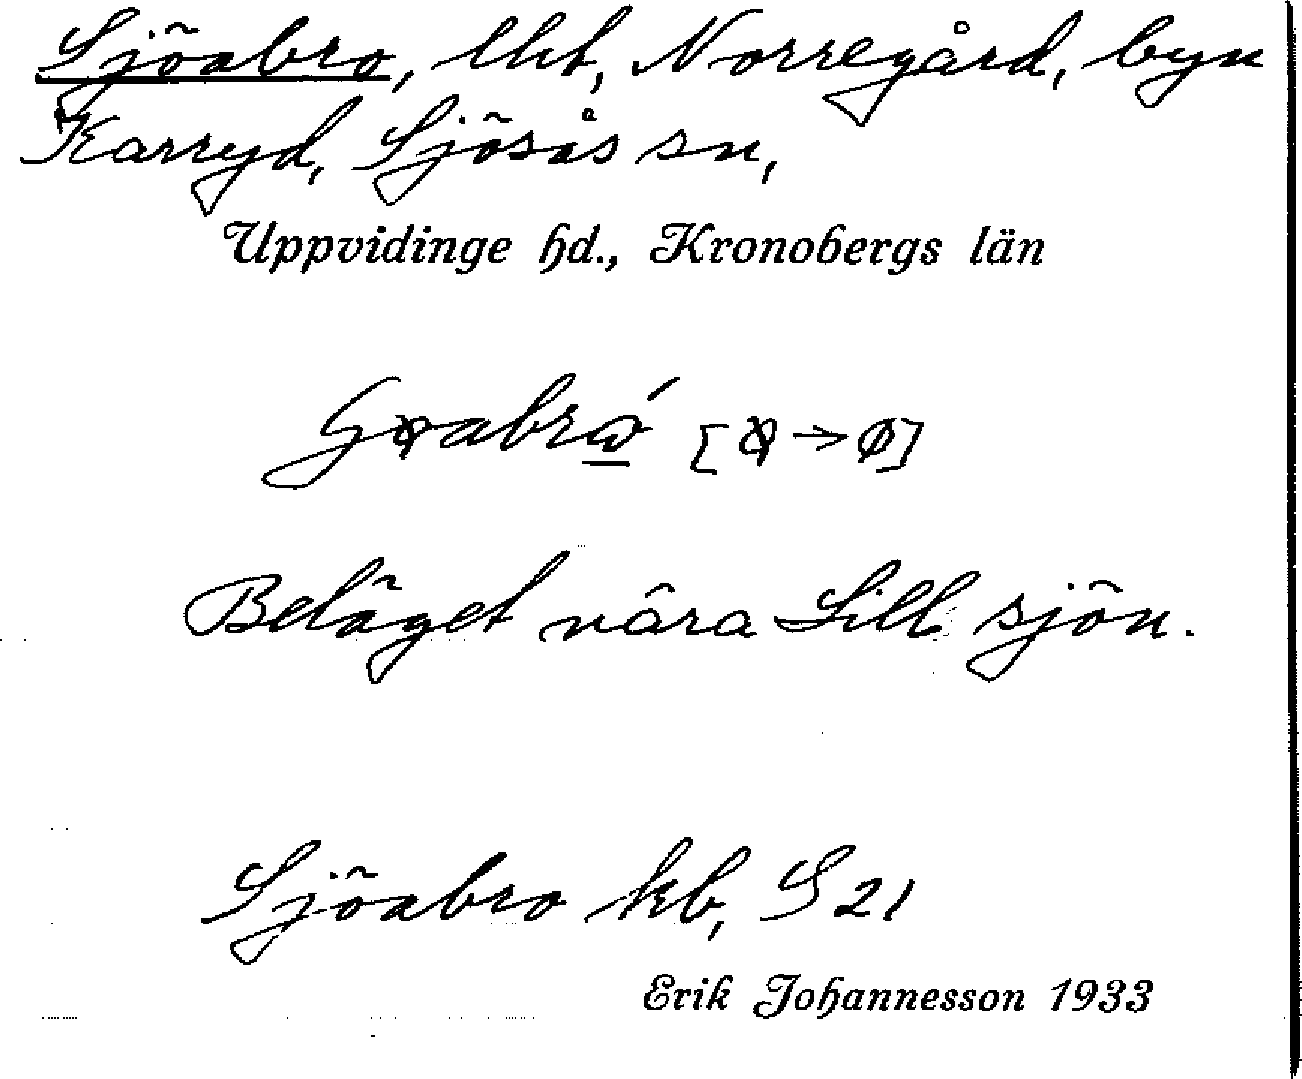 Sjöabro, lht, Norregård, byn
Karryd, Sjösås sn,
Uppvidinge hd., Kronobergs län
Beläget nära Lill sjön.
Sjöabro kb, S 21
Erik Johannesson 1933